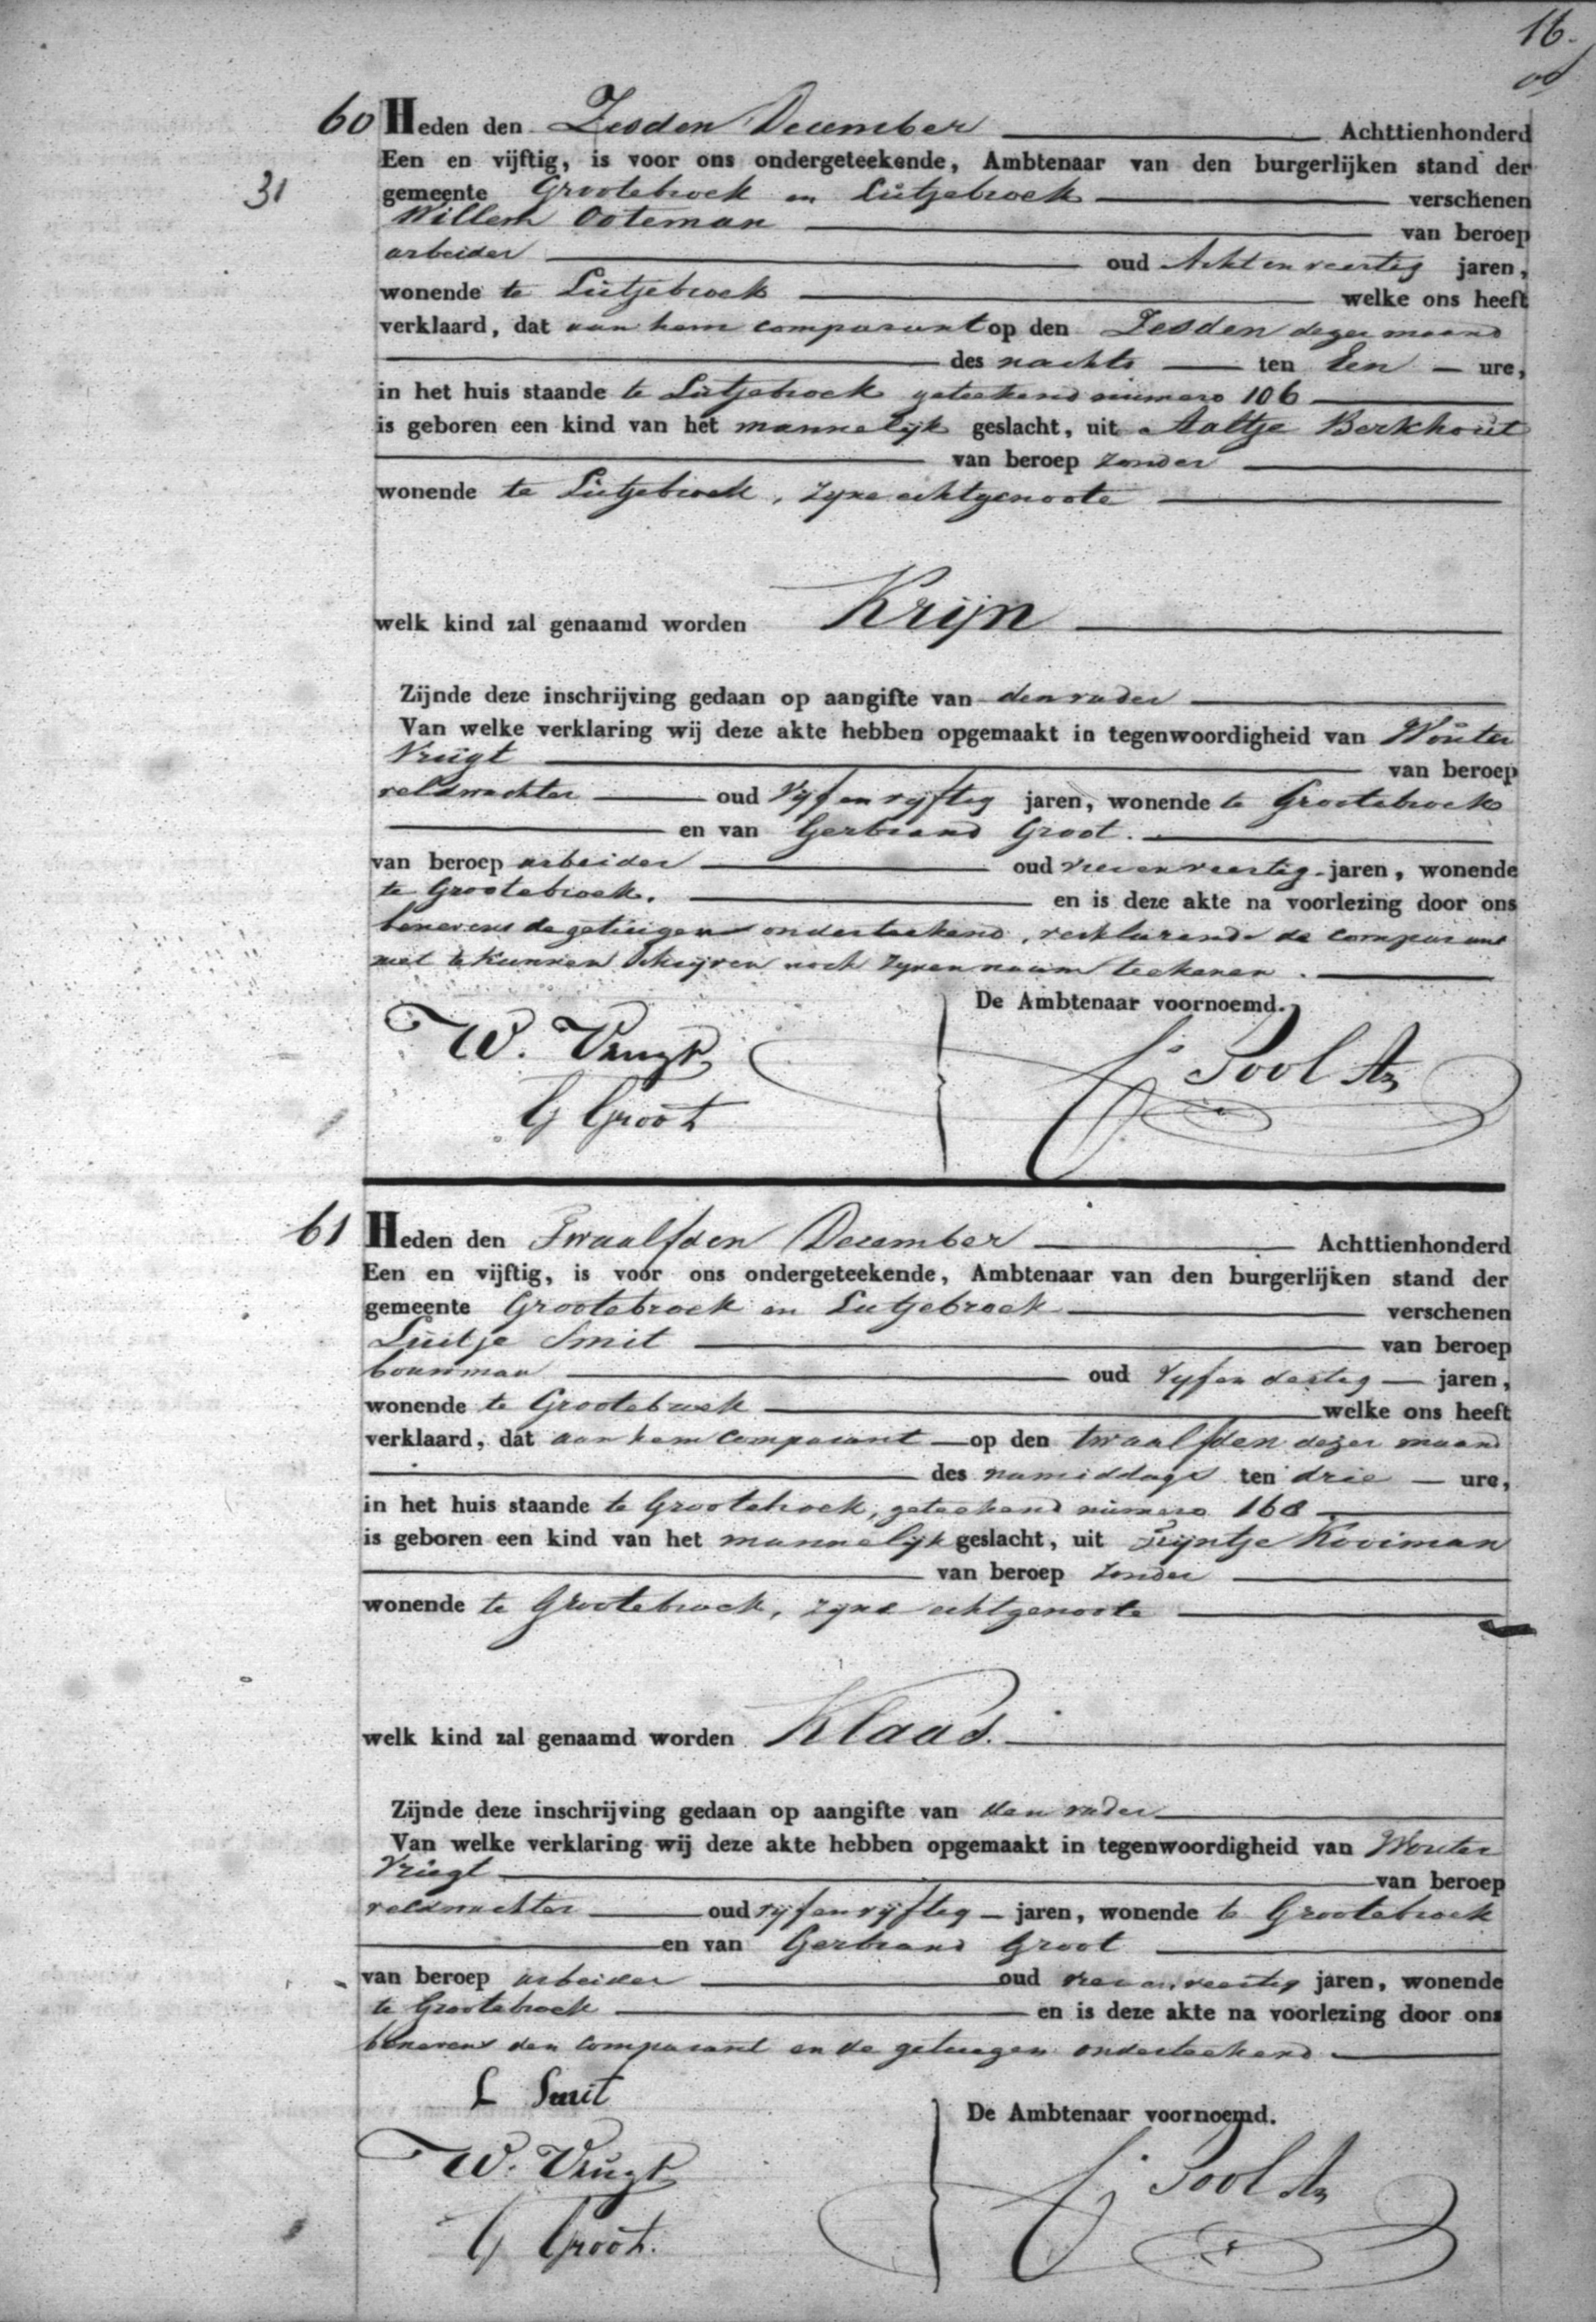 16.
60 Heden den Zesden December Achttienhonderd
Een en vijftig, is voor ons ondergeteekende, Ambtenaar van den burgerlijken stand der
31
gemeente Grootebroek en Lutjebroek verschenen
Willem Ooteman van beroep
arbeider oud Acht en veertig jaren,
wonende te Lutjebroek welke ons heeft
verklaard, dat aan hem comparant op den Zesden dezer maand
des nachts ten Een ure,
in het huis staande te Lutjebroek geteekend numero 106
is geboren een kind van het mannelijk geslacht, uit Aaltje Berkhout
van beroep zonder
wonende te Lutjebroek, zyne echtgenoote
welk kind zal genaamd worden Krijn
Zijnde deze inschrijving gedaan op aangifte van den vader
Van welke verklaring wij deze akte hebben opgemaakt in tegenwoordigheid van Wouter
Vrugt van beroep
veldwachter oud Vyf en vyftig jaren, wonende te Grootebroek
en van Gerbrand Groot.
van beroep arbeider oud vier en veertig jaren, wonende
te Grootebroek. en is deze akte na voorlezing door ons
benevens de getuigen onderteekend, verklarende de comparant
niet te kunnen schryven noch zynen naam teekenen.
De Ambtenaar voornoemd.
W. Vrugt
Pool Az
G Groot
61 Heden den Twaalfden December Achttienhonderd
Een en vijftig, is voor ons ondergeteekende, Ambtenaar van den burgerlijken stand der
gemeente Grootebroek en Lutjebroek verschenen
Luitje Smit van beroep
bouwman oud Vyf en dertig jaren,
wonende te Grootebroek welke ons heeft
verklaard, dat aan hem comparant op den twaalfden dezer maand
des namiddags ten drie ure,
in het huis staande te Grootebroek, geteekend numero 168
is geboren een kind van het mannelijk geslacht, uit Trijntje Kooiman
van beroep zonder
wonende te Grootebroek, zyne echtgenoote
welk kind zal genaamd worden Klaas.
Zijnde deze inschrijving gedaan op aangifte van den vader
Van welke verklaring wij deze akte hebben opgemaakt in tegenwoordigheid van Wouter
Vrugt van beroep
veldwachter oud vyf en vyftig jaren, wonende te Grootebroek
en van Gerbrand Groot
van beroep arbeider oud vier en veertig jaren, wonende
te Grootebroek en is deze akte na voorlezing door ons
benevens den comparant en de getuigen onderteekend
L Smit
De Ambtenaar voornoemd.
W. Vrugt
Pool Az
G Groot.